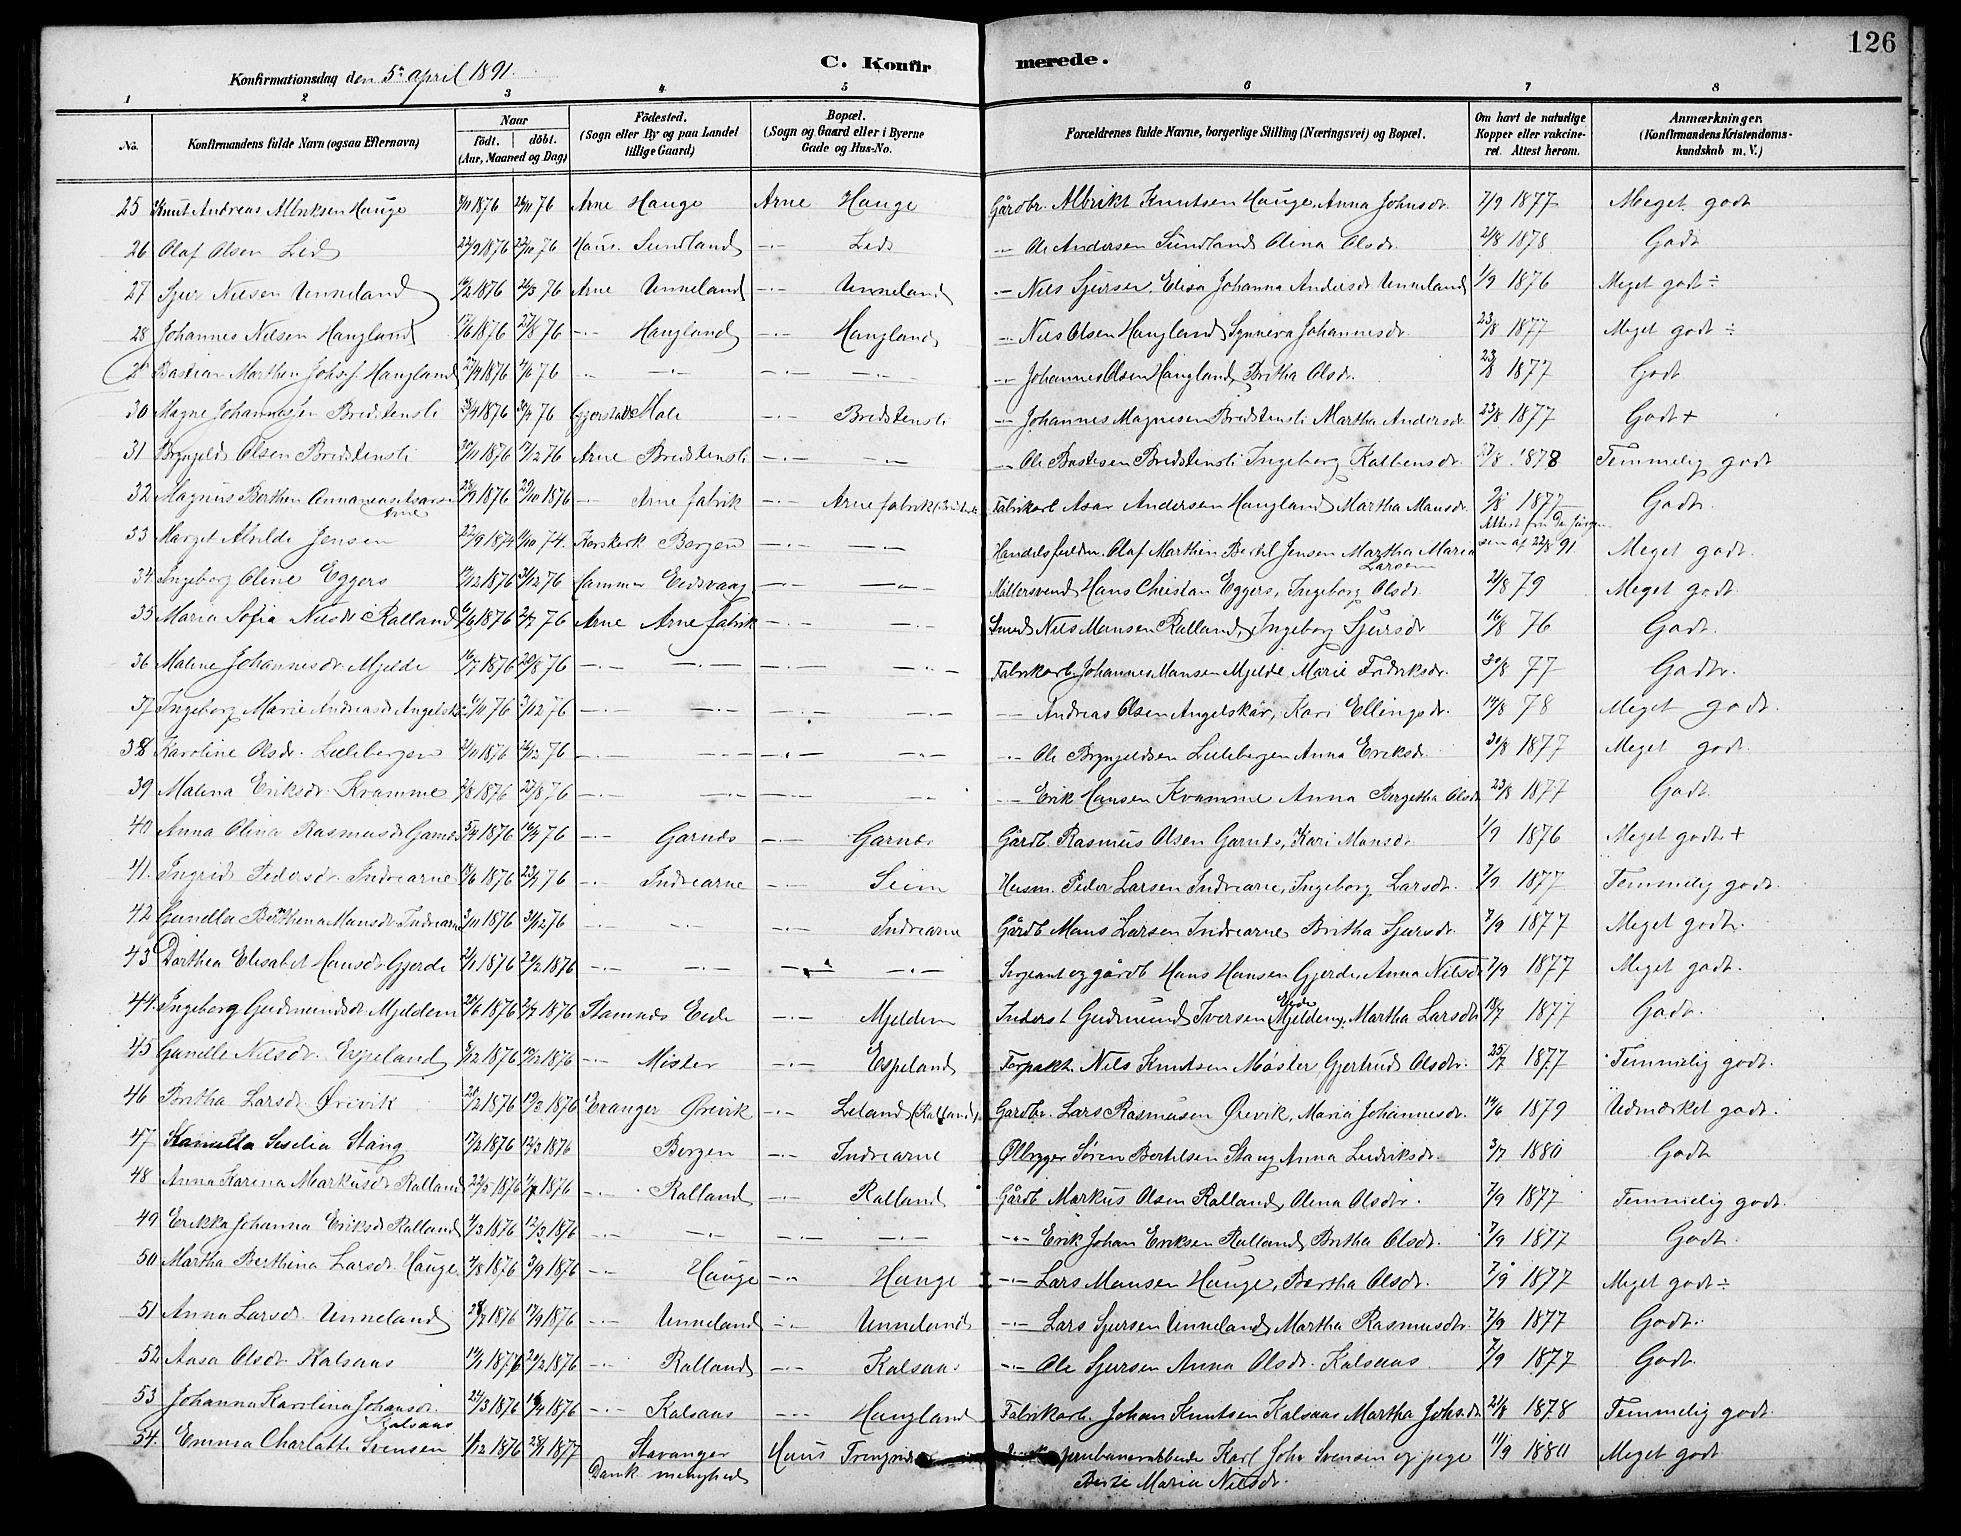 126
C. Konfirmerede.
Konfirmationsdag den 5te april 1891.
1 2 3 4 5 6 7 8
No. Konfirmandens fulde Navn (ogsaa Efternavn) Naar födt. döbt. (Aar, Maaned og Dag) Födested. (Sogn eller By og paa Landet tillige Gaard.) Bopæl. (Sogn og Gaard eller i Byerne Gade og Hus-No. Forældrenes fulde Navne, borgerlige Stilling (Næringsvei) og Bopæl. Om havt de naturlige Kopper eller vakcineret. Attest herom. Anmærkninger. (Konfirmandens Kristendomskundskab m. V.)
25 Knut Andreas Albriksen Hauge 76 Arne Hauge Arne Hauge Gårdbr. Albrikt Knutsen Hauge, Anna Johnsdr. 7/9 1877 Meget godt
26 Olaf Olsen Lid 22/9 1876 22/10 76 Haus. Sundland -"- Lid -"- Ole Andersen Sundland Olina Olsdr. 2/8 1878 Godt
27 Sjur Nilsen Unneland 1876 26/3 76 Arne Unneland -"- Unneland -"- Nils Sjursen, Elisa Johanna Andersdr Unneland 1/9 1876 Meget godt ÷
28 Johannes Nilsen Haugland 17/6 1876 27/8 76 -"- Haugland -"- Haugland -"- Nils Olsen Haugland Synneva Johannesdr. 23/8 1877 Meget godt ÷
Bastian Marthin Johs.s. Haugland 1876 76 -"- -"- -"- -"- -"- Johannes Olsen Haugland, Britha Olsdr. 23/8 1877 Godt
30 Magne Johannessen Bredstensli 1876 76 Male -"- Bredstensli -"- Johannes Magnesen Bredstensli Martha Andersdr. 23/8 1877 Godt +
31 Brynjeld Olsen Bredstensli 1876 17/12 76 Arne Bredstensli -"- -"- -"- Ole Bastesen Bredstensli Ingeborg Kolbensdr. 1878 Temmelig godt
32 Magnus Berthin Arne 28/9 1876 29/10 1876 -"- Arne fabrik -"- Arne fabrik Fabrikarb. Asar Andersen Haugland Martha Mansdr. 9/8 1877 Godt.
33 Marget Alvilde Jensen 22/9 1874 74. Korskirk Bergen -"- -"- Handelsfuldm. Olaf Marthin Bertil Jensen Martha Maria Larsen Attest fra Dr. Jürgensen af 22/8 91 Meget godt.
34 Ingeborg Oline Eggers 1876 31/12 76 Hammer Eidsvaag -"- -"- Møllersvend Hans Christian Eggers, Ingeborg Olsdr 2/8 79 Meget godt.
35 Maria Sofia Nilsdr Ralland 1876 2/7 76 Arne Arne fabrik -"- -"- Smed Nils Mansen Ralland, Ingeborg Sjursdr 16/8 76 Godt.
36 Maline Johannesdr. Mjelde 16/7 1876 20/8 76 -"- -"- -"- -"- Fabrikarb. Johannes Mansen Mjelde Marie Fredriksdr. 30/8 77 Godt.
37 Ingeborg Marie Andreasdr Angelskår 76 3/12 76 -"- -"- -"- -"- -"- Andreas Olsen Angelskår, Kari Ellingsdr. 14/8 78 Meget godt.
38 Karoline Olsdr. Lillebergen 1876 26/12 76 -"- -"- -"- -"- -"- Ole Brynjeldsen Lillebergen Anna Eriksdr. 30/8 1877 Meget godt.
39 Malina Eriksdr. Kvamme 2/8 1876 27/8 76 -"- -"- -"- -"- -"- Erik Hansen Kvamme Anna Bergetha Olsdr 23/8 1877 Godt.
40 Anna Olina Rasmusdr Garnæs 1876 16/4 76 -"- Garnæs -"- Garnæs Gårdb. Rasmus Olsen Garnæs, Kari Mansdr. 1/9 1876 Meget godt. +
41. Ingrid Pedersdr. Indrearne 1876 23/7 76 -"- Indrearne -"- Seim Husm. Peder Larsen Indrearne, Ingeborg Larsdr. 7/9 1877 Temmelig godt.
42 Gunilla Berthina Mansdr. Indrearne 3/11 1876 31/12 76 -"- -"- -"- Indrearne Gårdb Mans Larsen Indrearne Britha Sjursdr. 7/9 1877 Meget godt.
43 Dorthea Elisabet Hansdr Gjerde 1876 20/2 1876 -"- -"- -"- -"- Sergeant og gårdb Hans Hansen Gjerde, Anna Nilsdr 7/9 1877 Meget godt.
44. Ingeborg Gudmundsdr. Mjeldem 1876 2/7 1876 Stamnæs Eide -"- Mjeldem Inderst Gudmund Iversen Eide Mjeldem, Martha Larsdr 1877 Godt.
45 Gunille Nilsdr. Espeland 1876 1876 -"- Mister -"- Espeland Forpakt. Nils Knutsen Møster, Gjertrud Olsdr. 25/7 1877 Temmelig godt.
46 Britha Larsdr. Ørevik 1876 19/3 1876 Evanger Ørevik -"- Leland (Ralland) Gardbr. Lars Rasmusen Ørevik, Maria Johannesdr. 14/6 1879 Udmærket godt.
47 Kamilla Seselia Stang 17/2 1876 12/3 1876 Bergen -"- Indrearne Ølbrygger Sören Bertelsen Stang Anna Ludviksdr. 3/7 1880 Godt
48 Anna Karina Markusdr Ralland 22/5 1876 1876 -"- Ralland -"- Ralland Gårdb Markus Olsen Ralland, Olina Olsdtr. 7/9 1877 Temmelig godt.
49 Erikka Johanna Eriksdr Ralland 4/3 1876 12/3 1876 -"- -"- -"- -"- -"- Erik Johan Eriksen Ralland, Britha Olsdr. 7/9 1877 Godt.
50 Martha Berthina Larsdr. Hauge 1876 3/9 1876 -"- Hauge -"- Hauge -"- Lars Mansen Hauge, Bertha Olsdr. 7/9 1877 Meget godt ÷
51 Anna Larsdr. Unneland 1876 17/9 1876 -"- Unneland -"- Unneland -"- Lars Sjursen Unneland, Martha Rasmusdr. 7/9 1877 Godt.
52 Aasa Olsdr. Kalsaas 1876 20/2 1876 -"- Ralland -"- Kalsaas -"- Ole Sjursen Anna Olsdr. Kalsaas 7/9 1877 Godt.
53 Johanna Karolina Johansdr. Kalsaas 24/3 1876 1876 -"- Kalsaas -"- Haugland Fabrikarb. Johan Knutsen Kalsaas Martha Johs.dr. 2/8 1878 Temmelig godt.
54. Emma Charlatte Svensen 1876 28/1 1877 Stavanger Dank menighed Haus Trengereid Karl Joh. Svensen og pige Berte Maria Nilsdr. 11/9 1880 Meget godt